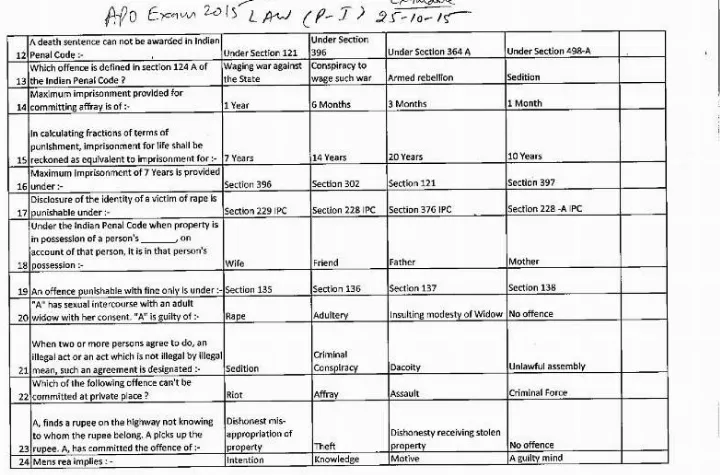 APO Exam 2015 LAW (P-I) 25-10-15
12 A death sentence can not be awarded in Indian Penal Code :- Under Section 121 Under Section 396 Under Section 364 A Under Section 498-A
13 Which offence is defined in section 124 A of the Indian Penal Code ? Waging war against the State Conspiracy to wage such war Armed rebellion Sedition
14 Maximum imprisonment provided for committing affray is of :- 1 Year 6 Months 3 Months 1 Month
15 In calculating fractions of terms of punishment, imprisonment for life shall be reckoned as equivalent to imprisonment for :- 7 Years 14 Years 20 Years 10 Years
16 Maximum Imprisonment of 7 Years is provided under :- Section 396 Section 302 Section 121 Section 397
17 Disclosure of the identity of a victim of rape is punishable under :- Section 229 IPC Section 228 IPC Section 376 IPC Section 228 -A IPC
18 Under the Indian Penal Code when property is in possession of a person's ______, on account of that person, it is in that person's possession :- Wife Friend Father Mother
19 An offence punishable with fine only is under :- Section 135 Section 136 Section 137 Section 138
20 "A" has sexual intercourse with an adult widow with her consent. "A" is guilty of :- Rape Adultery Insulting modesty of Widow No offence
21 When two or more persons agree to do, an illegal act or an act which is not illegal by illegal mean, such an agreement is designated :- Sedition Criminal Conspiracy Dacoity Unlawful assembly
22 Which of the following offence can't be committed at private place ? Riot Affray Assault Criminal Force
23 A, finds a rupee on the highway not knowing to whom the rupee belong. A picks up the rupee. A, has committed the offence of :- Dishonest mis-appropriation of property Theft Dishonesty receiving stolen property No offence
24 Mens rea implies : - Intention Knowledge Motive A guilty mind